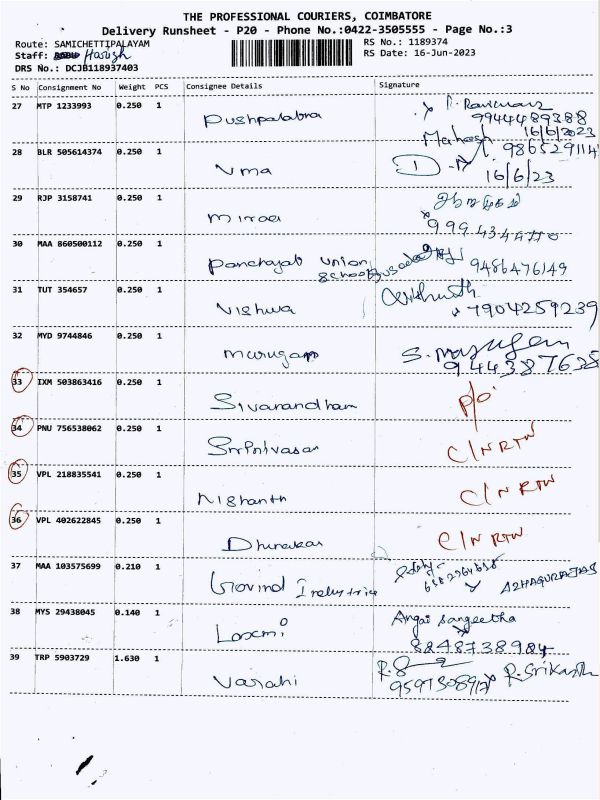 THE PROFESSIONAL COURIERS, COIMBATORE
Delivery Runsheet - P20 - Phone No.:0422-3505555 - Page No.:3
Route: SAMICHETTIPALAYAM RS No.: 1189374
Staff: Harish RS Date: 16-Jun-2023
DRS No.: DCJB118937403
S No Consignment No Weight PCS Consignee Details Signature
27 MTP 1233993 0.250 1 Pushpalatha
9944489388
16/6/2023
Mahesh
28 BLR 505614374 0.250 1 Uma 986529114
16/6/23
29 RJP 3158741 0.250 1 Miraa
30 MAA 860500112 0.250 1 Panchayat Union
School 9486476149
31 TUT 354657 0.250 1 Vishwa
7904259239
32 MYD 9744846 0.250 1 Murugan S. Murugan
944387635
33 IXM 503863416 0.250 1 Sivanandham P/O
34 PNU 756538062 0.250 1 Srinivasan C/N RTN
35 VPL 218835541 0.250 1 Nishanth C/N RTN
36 VPL 402622845 0.250 1 Dhinakar C/N RTN
37 MAA 103575699 0.210 1 Govind Industries
38 MYS 29438045 0.140 1 Laxmi Angai Sangeetha
8848738984
39 TRP 5903729 1.630 1 Varahi R. Srikanth